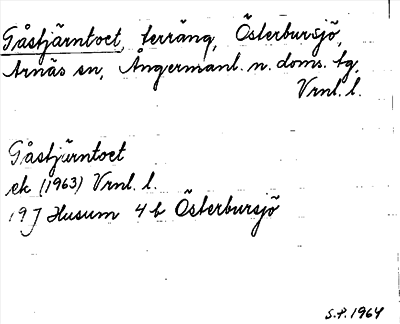 Gåstjärntoet, terräng, Österbursjö,
Arnäs sn, Ångermanl. n. doms. tg,
Vrnl. l.
Gåstjärntoet
ek (1963) Vrnl. l.
19J Husum 4b Österbursjö
S.P. 1964